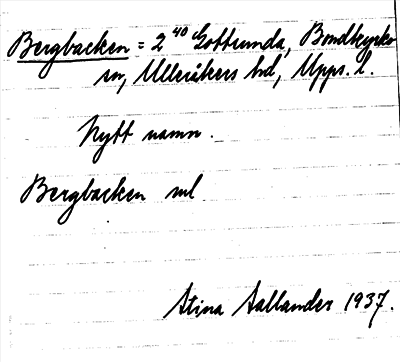 Bergbacken = 2⁴⁰ Gottsunda, Bondkyrko
sn, Ulleråkers hd, Upps. l.
Nytt namn.
Bergbacken ml
Stina Aallander 1937.